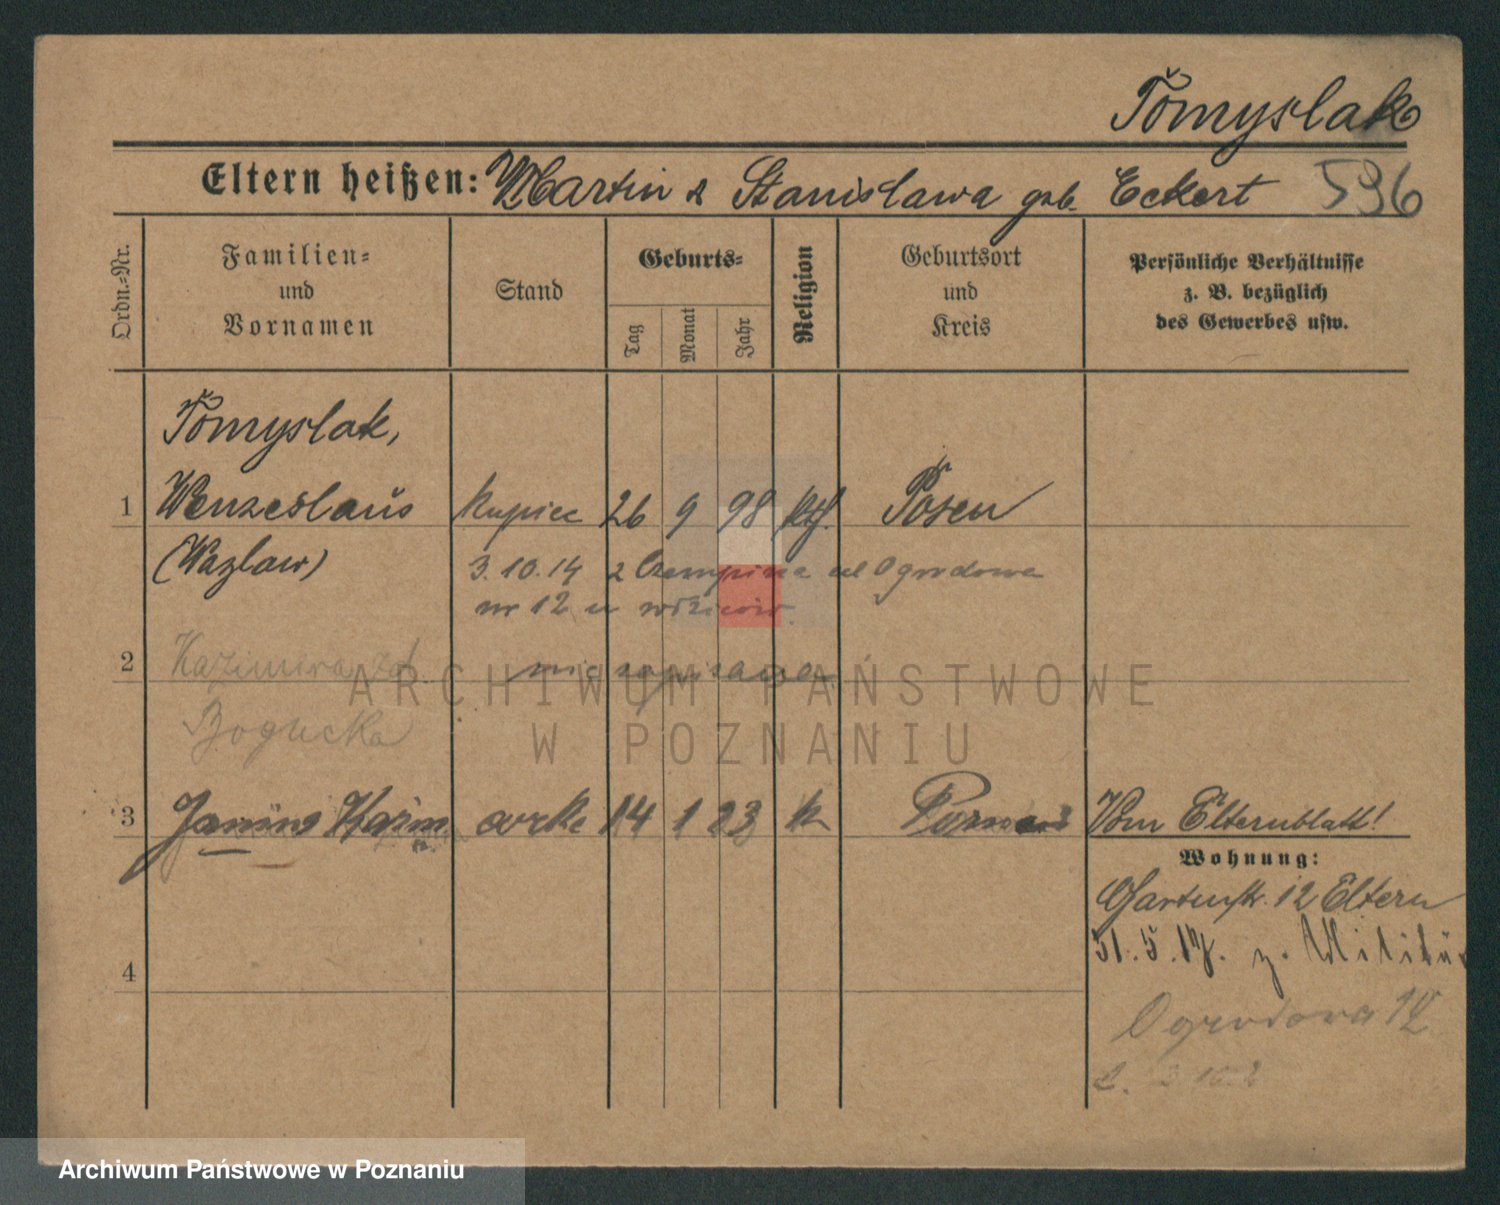 Tomyslak
Eltern heißen: Martin & Stanislawa geb. Eckert 596
Ordn.-Nr.
Familien-
und
Vornamen
Stand
Geburts-
Tag
Monat
Jahr
Religion
Geburtsort
und
Kreis
Persönliche Verhältnisse
z. B. bezüglich
des Gewerbes usw.
Tomyslak,
1 Wenzeslaus kupiec 26 9 98 kth. Posen
(Wazlaw) 3.10.14 z Czempinia ul Ogrodowa
nr 12 u rodziców.
2 Kazimiera
nie zapisana
Bogucka
3 Janina Kazim. corka 14 1 23 k Poznań Vom Elternblatt!
Wohnung:
Gartenstr. 12 Eltern
31.5.17. z. Militär
4
Ogrodowa 12
ARCHIWUM PAŃSTWOWE
W POZNANIU
Archiwum Państwowe w Poznaniu